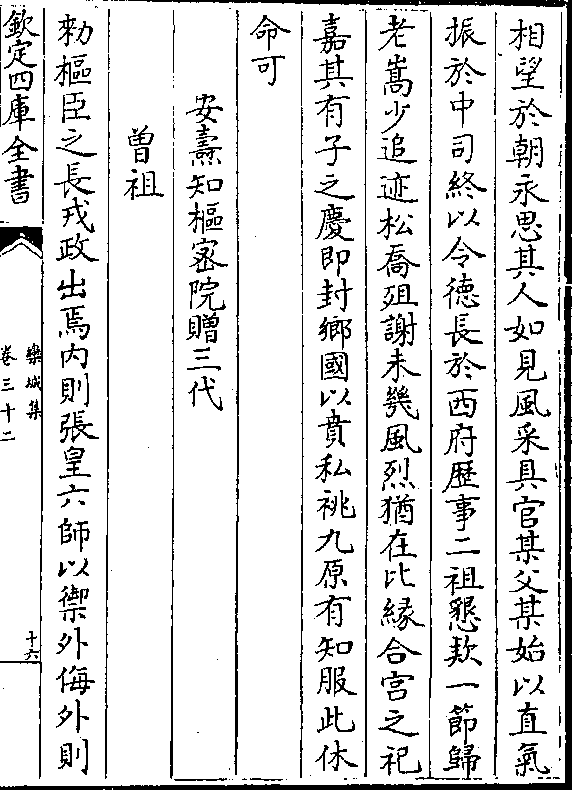 相望於朝永思其人如見風采具官某父某始以直氣
振於中司終以令德長於西府歴事二祖懇欵一節歸
老嵩少追迹松喬殂謝未幾風烈猶在比緣合宫之祀
嘉其有子之慶即封鄉國以賁私祧九原有知服此休
命可
安燾知樞密院贈三代
曽祖
勑樞臣之長戎政出焉内則張皇六師以禦外侮外則
欽定四庫全書
欒城集
卷三十二
十六